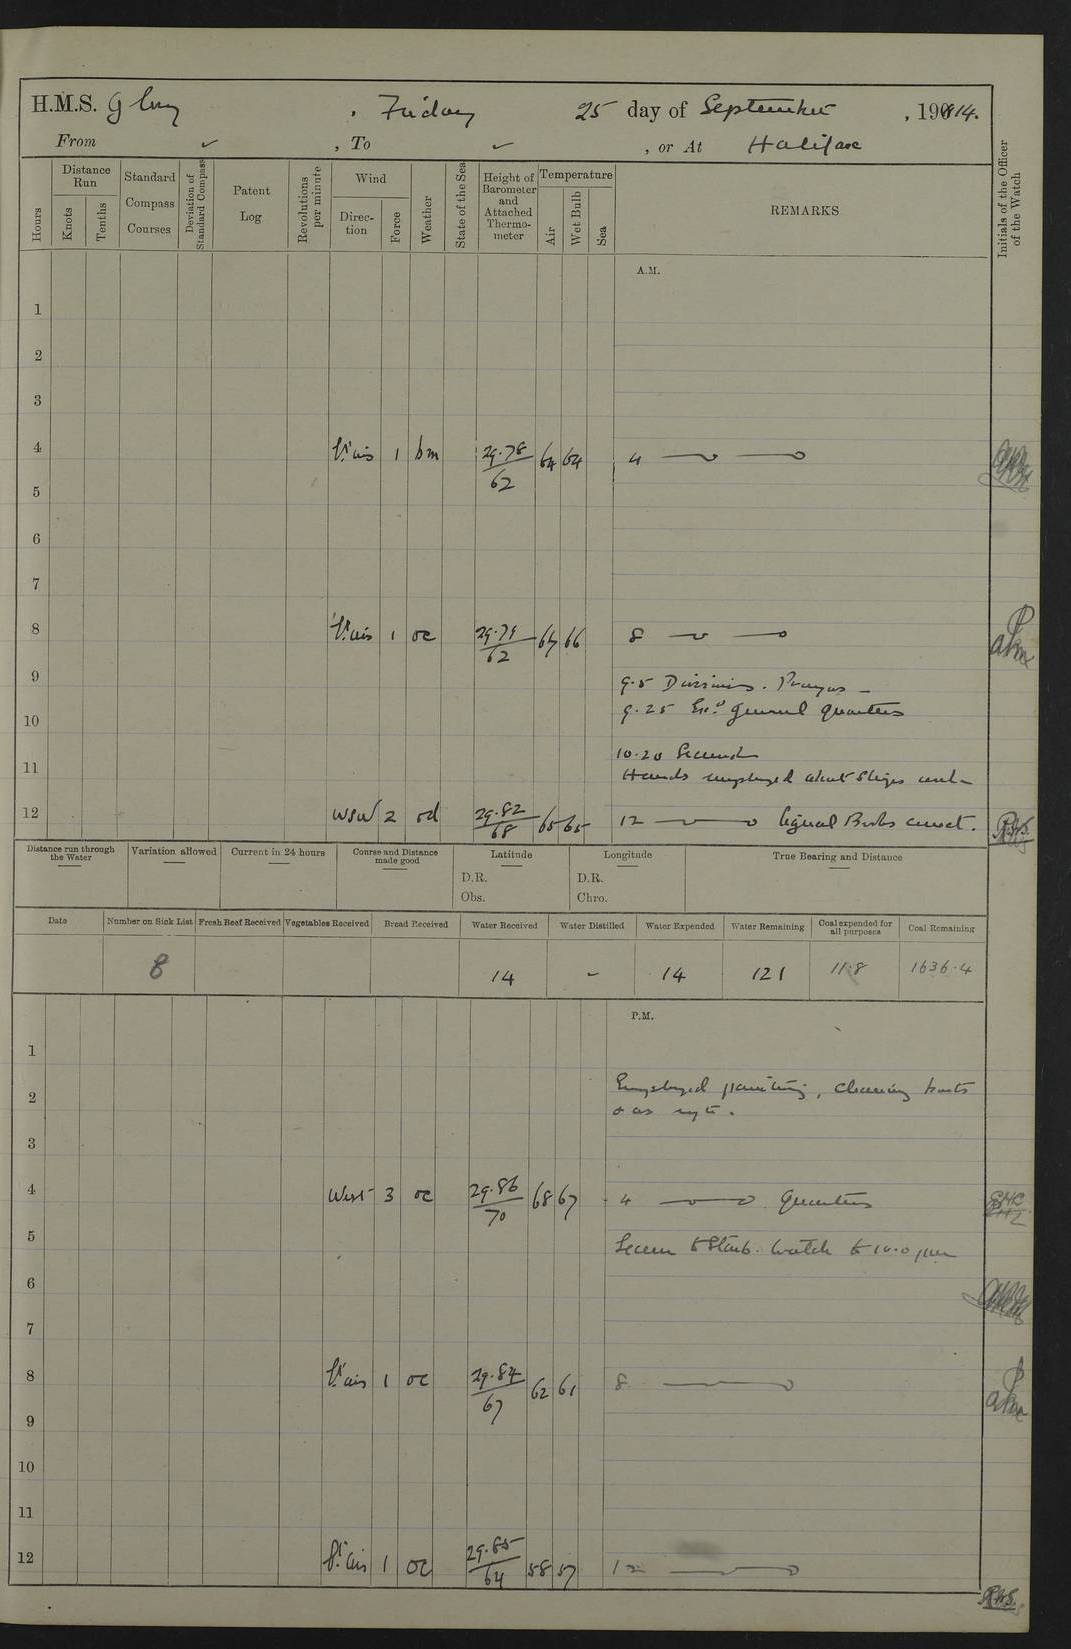 H.M.S. Glory , Friday 25 day of September , 1914.
From ✓ , To ✓ , or At Halifax
Hours
Distance Run
Knots
Tenths
Standard Compass Courses
Deviation of Standard Compass
Patent Log
Revolutions per minute
Wind
Direction
Force
Weather
State of the Sea
Height of Barometer and Attached Thermometer
Temperature
Air
Wet Bulb
Sea
REMARKS
Initials of the Officer of the Watch
A.M.
1
2
3
4 Lt airs 1 bm 29.78/62 64 64 4
5
6
7
8 Lt airs 1 oc 29.79/62 67 66 8
9 9.5 Divisions. Prayers
10 9.25 Exd General Quarters
10.20 Secured
11 Hands employed about Ships
12 WSW 2 od 29.82/68 65 65 12 Signal Books correct.
Distance run through the Water
Variation allowed
Current in 24 hours
Course and Distance made good
Latitude
D.R.
Obs.
Longitude
D.R.
Chro.
True Bearing and Distance
Date
Number on Sick List
Fresh Beef Received
Vegetables Received
Bread Received
Water Received
Water Distilled
Water Expended
Water Remaining
Coal expended for all purposes
Coal Remaining
8 14 - 14 121 11.8 1636.4
P.M.
1
2 Employed painting, cleaning boats
3
4 West 3 oc 29.86/70 68 67 4 Quarters
5 Leave to Starb. Watch to 10.0 pm
6
7
8 Lt airs 1 oc 29.84/67 62 61 8
9
10
11
12 Lt airs 1 oc 29.85/64 58 57 12